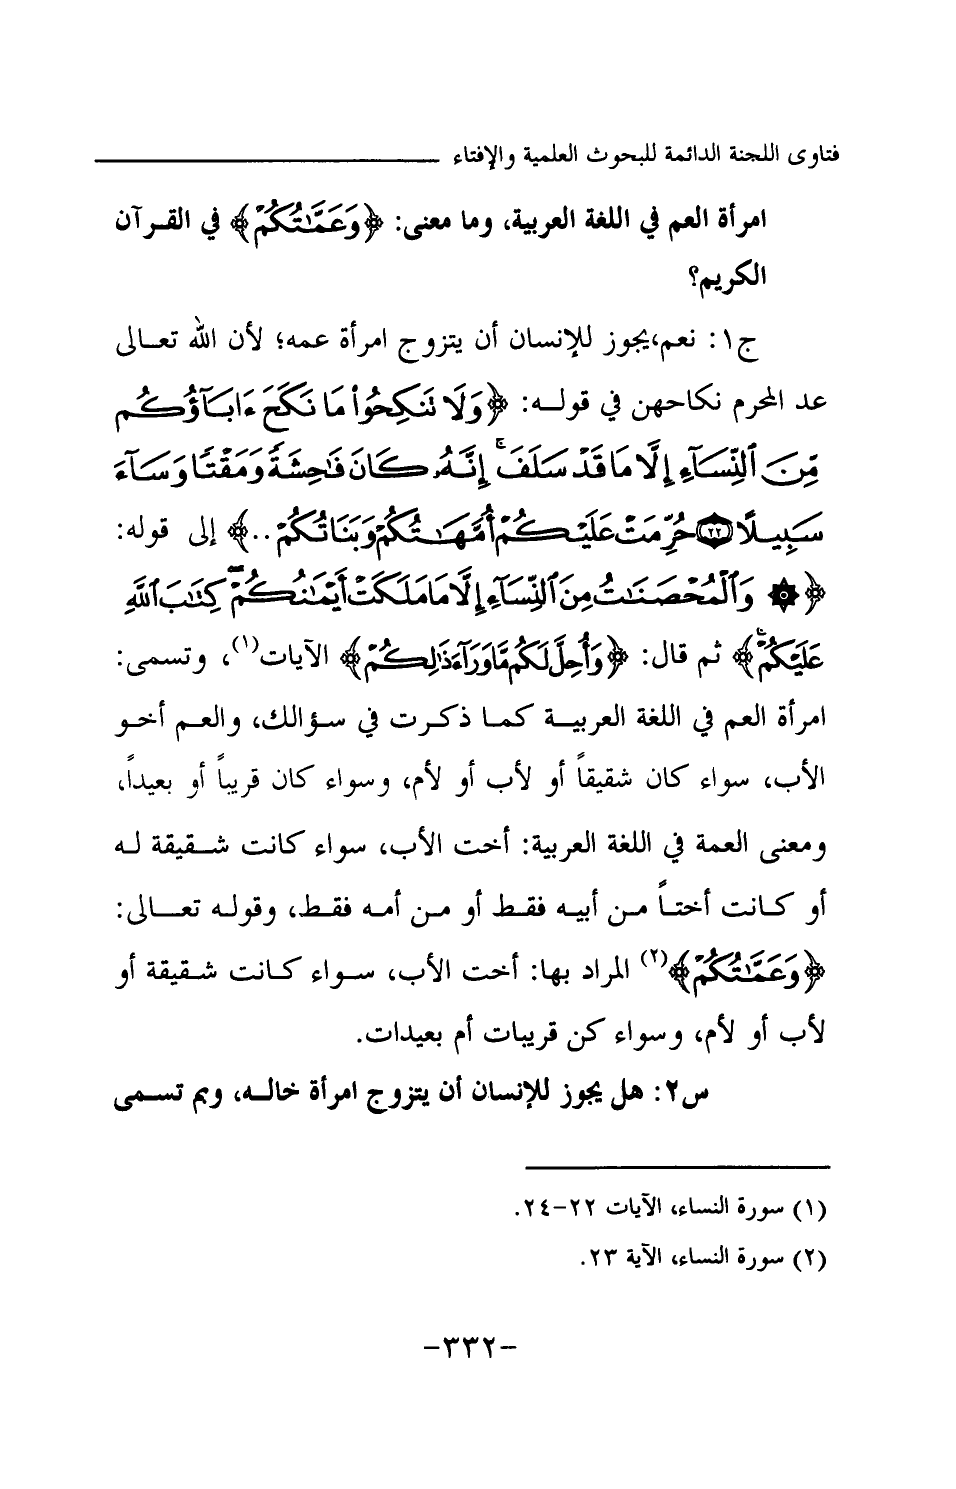 فتاوى اللجنة الدائمة للبحوث العلمية والإفتاء
امرأة العم في اللغة العربية، وما معنى: ﴿وَعَمَّٰتُكُمْ﴾ في القـرآن
الكريم؟
ج١: نعم،يجوز للإنسان أن يتزوج امرأة عمه؛ لأن الله تعـالى
عد المحرم نكاحهن في قولـه: ﴿وَلَا تَنكِحُوا۟ مَا نَكَحَ ءَابَآؤُكُم
مِّنَ ٱلنِّسَآءِ إِلَّا مَا قَدْ سَلَفَ ۚ إِنَّهُۥ كَانَ فَٰحِشَةً وَمَقْتًا وَسَآءَ
سَبِيلًا ﴿٢٢﴾ حُرِّمَتْ عَلَيْكُمْ أُمَّهَٰتُكُمْ وَبَنَاتُكُمْ..﴾ إلى قوله:
﴿۞ وَٱلْمُحْصَنَٰتُ مِنَ ٱلنِّسَآءِ إِلَّا مَا مَلَكَتْ أَيْمَٰنُكُمْ ۖ كِتَٰبَ ٱللَّهِ
عَلَيْكُمْ ۚ﴾ ثم قال: ﴿وَأُحِلَّ لَكُم مَّا وَرَآءَ ذَٰلِكُمْ﴾ الآيات(١)، وتسمى:
امرأة العم في اللغة العربيـة كمـا ذكـرت في سـؤالك، والعـم أخـو
الأب، سواء كان شقيقاً أو لأب أو لأم، وسواء كان قريباً أو بعيداً،
ومعنى العمة في اللغة العربية: أخت الأب، سواء كانت شـقيقة لـه
أو كـانت أختـاً مـن أبيـه فقـط أو مـن أمـه فقـط، وقولـه تعـالى:
﴿وَعَمَّٰتُكُمْ﴾(٢) المراد بها: أخت الأب، سـواء كـانت شـقيقة أو
لأب أو لأم، وسواء كن قريبات أم بعيدات.
س٢: هل يجوز للإنسان أن يتزوج امرأة خالـه، وبم تسـمى
(١) سورة النساء، الآيات ٢٢-٢٤.
(٢) سورة النساء، الآية ٢٣.
-٣٣٢-